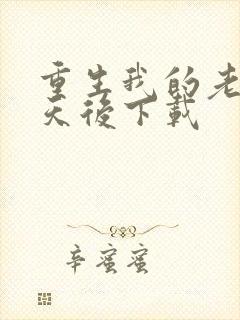 重生我的老
天後下載
辛蜜蜜